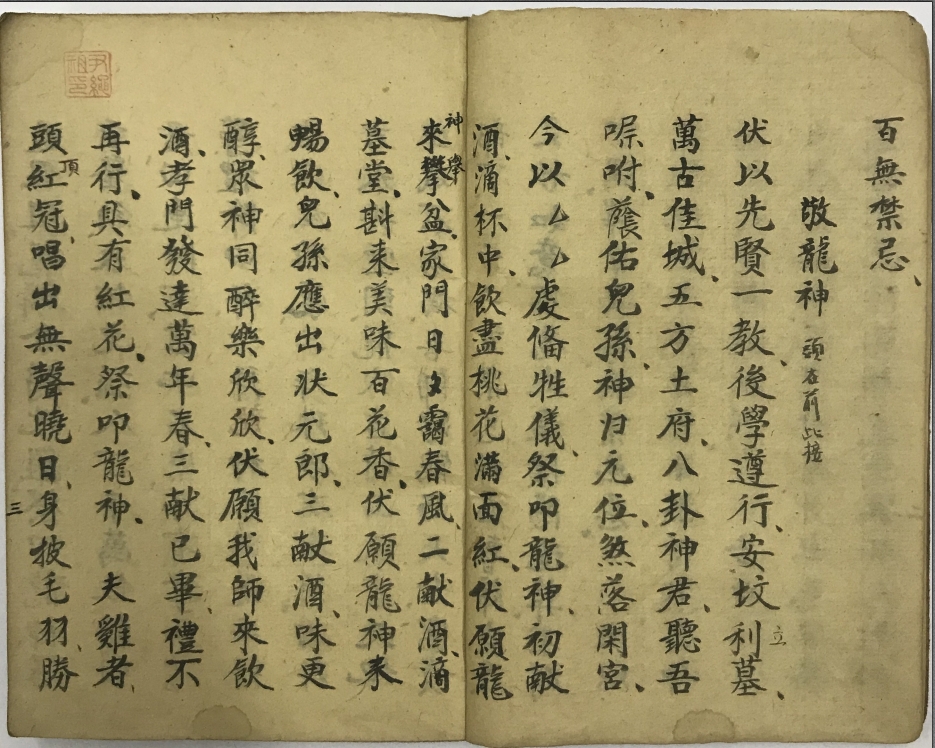 百無禁忌、
敬龍神 頭在前此擡
伏以先賢一教、後學遵行、安坟利墓、
立
萬古佳城、五方土府、八卦神君、聽吾
㖿咐、蔭佑兒孫、神归元位、煞落閑宮、
今以厶厶處俻牲儀、祭叩龍神、初献
酒、滴杯中、飲盡桃花滿面紅、伏願龍
神
來攀盆、家門日日靄春風、二献酒、滴
舉
墓堂、斟来美味百花香、伏願龍神来
暢飲、兒孫應出状元郎、三献酒、味更
醇、眾神同醉樂欣欣、伏願我師來飲
酒、孝門發達萬年春、三献已畢、禮不
再行、具有紅花、祭叩龍神、 夫雞者、
頭紅冠、唱出無聲曉日、身披毛羽、勝
頂
三